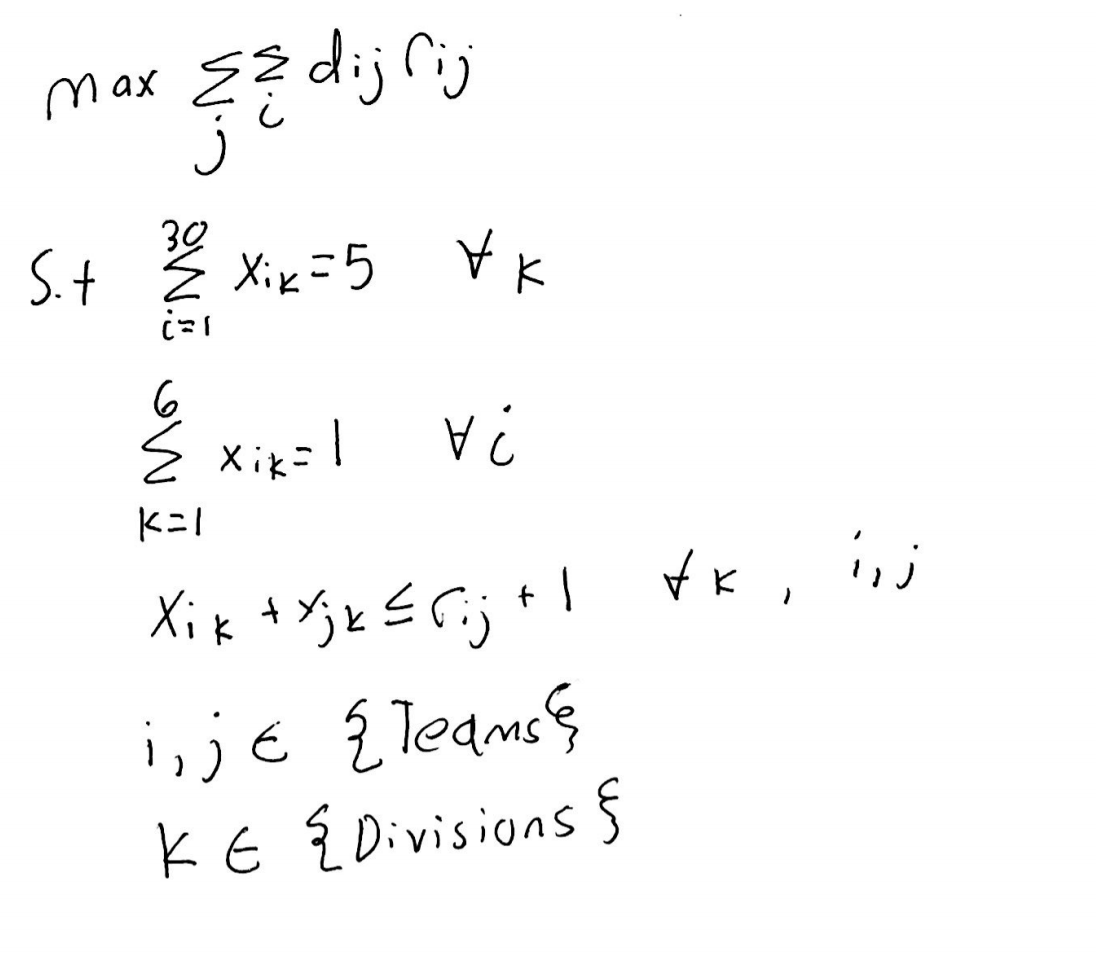 max Σ_j Σ_i d_ij r_ij
S.t Σ_{i=1}^{30} x_ik = 5 ∀ k
Σ_{k=1}^{6} x_ik = 1 ∀ i
x_ik + x_jk ≤ r_ij + 1 ∀ k , i,j
i,j ∈ {Teams}
k ∈ {Divisions}